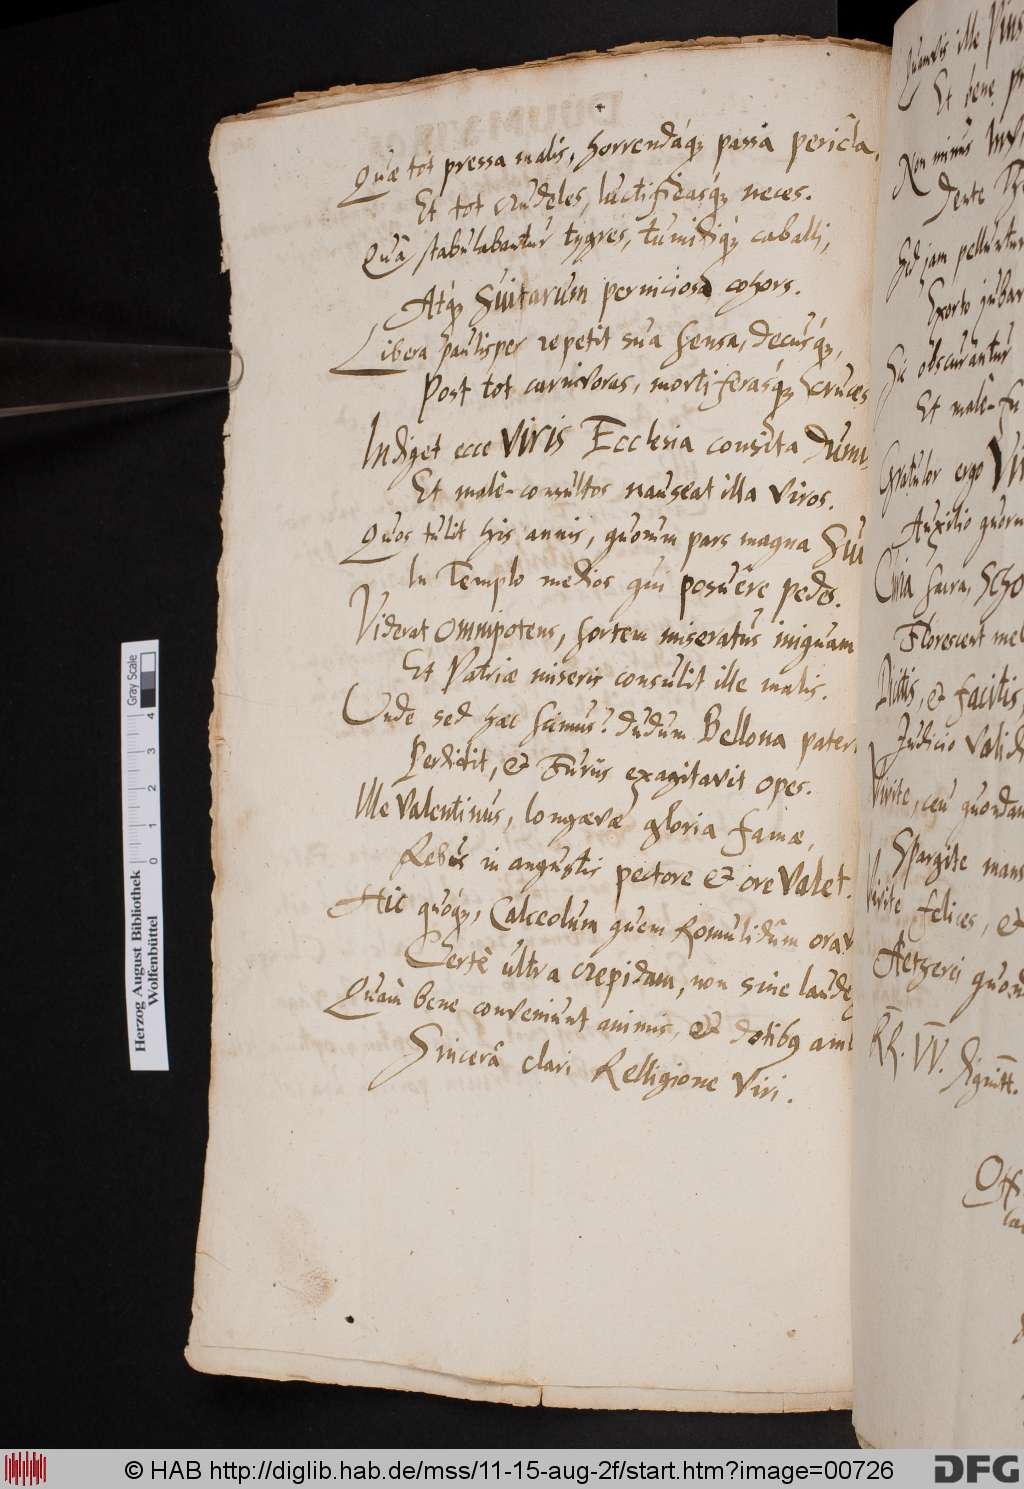 Quæ tot pressa malis, horrendáq; passa pericla,
Et tot crudeles, luctificasq; neces.
Quâ stabulabantur tygres, tumidiq; caballi,
Atq; Suitarum perniciosa cohors.
Libera paulisper repetit sua Sensa, decusq;,
Post tot carnivoras, mortiferasq; cruces
Indiget ecce Viris Ecclesia consita
Et malè-consultos nauseat illa Viros.
Quos tulit his annis, quorum pars magna
In Templo medios qui posuêre pedes.
Viderat Omnipotens, sortem miseratus iniquam
Et Patriæ miseris consulit ille malis.
Unde sed hæc scimus? dudum Bellona
Perdidit, et Furiis exagitavit opes.
Ille Valentinus, longævæ gloria famæ,
Rebus in angustis pectore et ore Valet.
Hic quoq;, Calceolum quem Romulidûm
Certè ultra crepidam, non sine laude
Quàm bene conveniunt animis, et dotibq
Sincerâ clari Relligione Viri.
Quamvis ille Pius
Et bene
Non minus
Dente
Sed jam pelluntur
Exorto jubar
Sic obscurantur
Et malè-
Gratulor ergo
Auxilio
Curia sacra,
Florescent
Dictis, et factis,
Judicio
Vivite, ceu quondam
Spargite
Vivite felices, et
Aetzerei
RR. VV.
Herzog August Bibliothek
Wolfenbüttel
0 1 2 3 4
Gray Scale
© HAB http://diglib.hab.de/mss/11-15-aug-2f/start.htm?image=00726
DFG